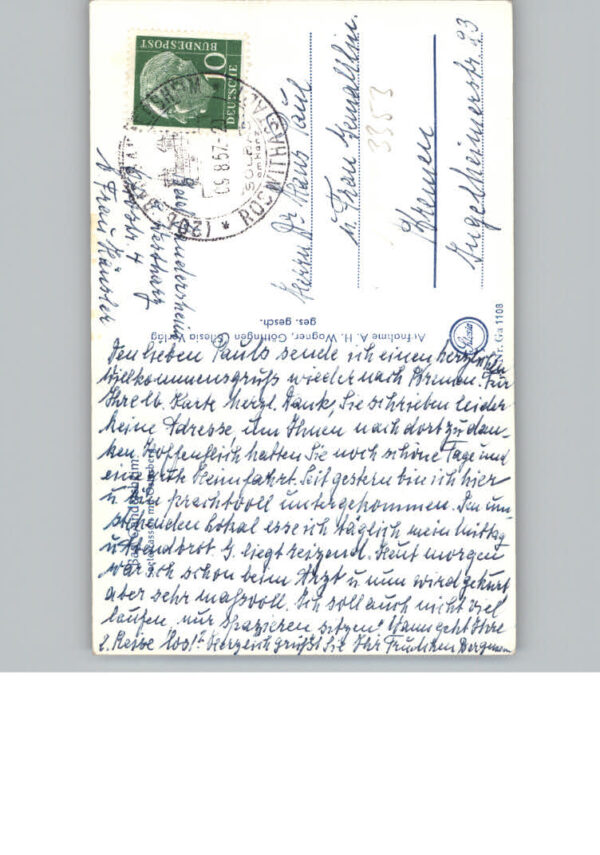 10
DEUTSCHE
BUNDESPOST
05.8.57
(20b)
ROSWITHASTADT
Bad Gandersheim
Frau Känsler
Herrn Dr. Hans Paul
u. Frau Gemahlin.
3353
Bremen
Ingelheimerstr 23
Aufnahme A. H. Wagner, Göttingen Silesia Verlag
ges. gesch.
Silesia
Nr. Ga 1108
Bad Gandersheim
Den lieben Pauls sende ich einen herzlichen
Willkommensgruß wieder nach Bremen. Für
Ihre lb. Karte herzl. Dank, Sie schrieben leider
keine Adresse, um Ihnen nach dort zu dan-
ken. Hoffentlich hatten Sie noch schöne Tage und
eine gute Heimfahrt. Seit gestern bin ich hier
u. bin prachtvoll untergekommen. In um-
stehenden Lokal esse ich täglich mein Mittag
u. Abendbrot. G. liegt reizend. Heut morgen
war ich schon beim Arzt u. nun wird gekurt
aber sehr maßvoll. Ich soll auch nicht viel
laufen, nur spazieren sitzen! Wann geht Ihre
2. Reise los? Herzlich grüßt Sie Ihr Bergmann